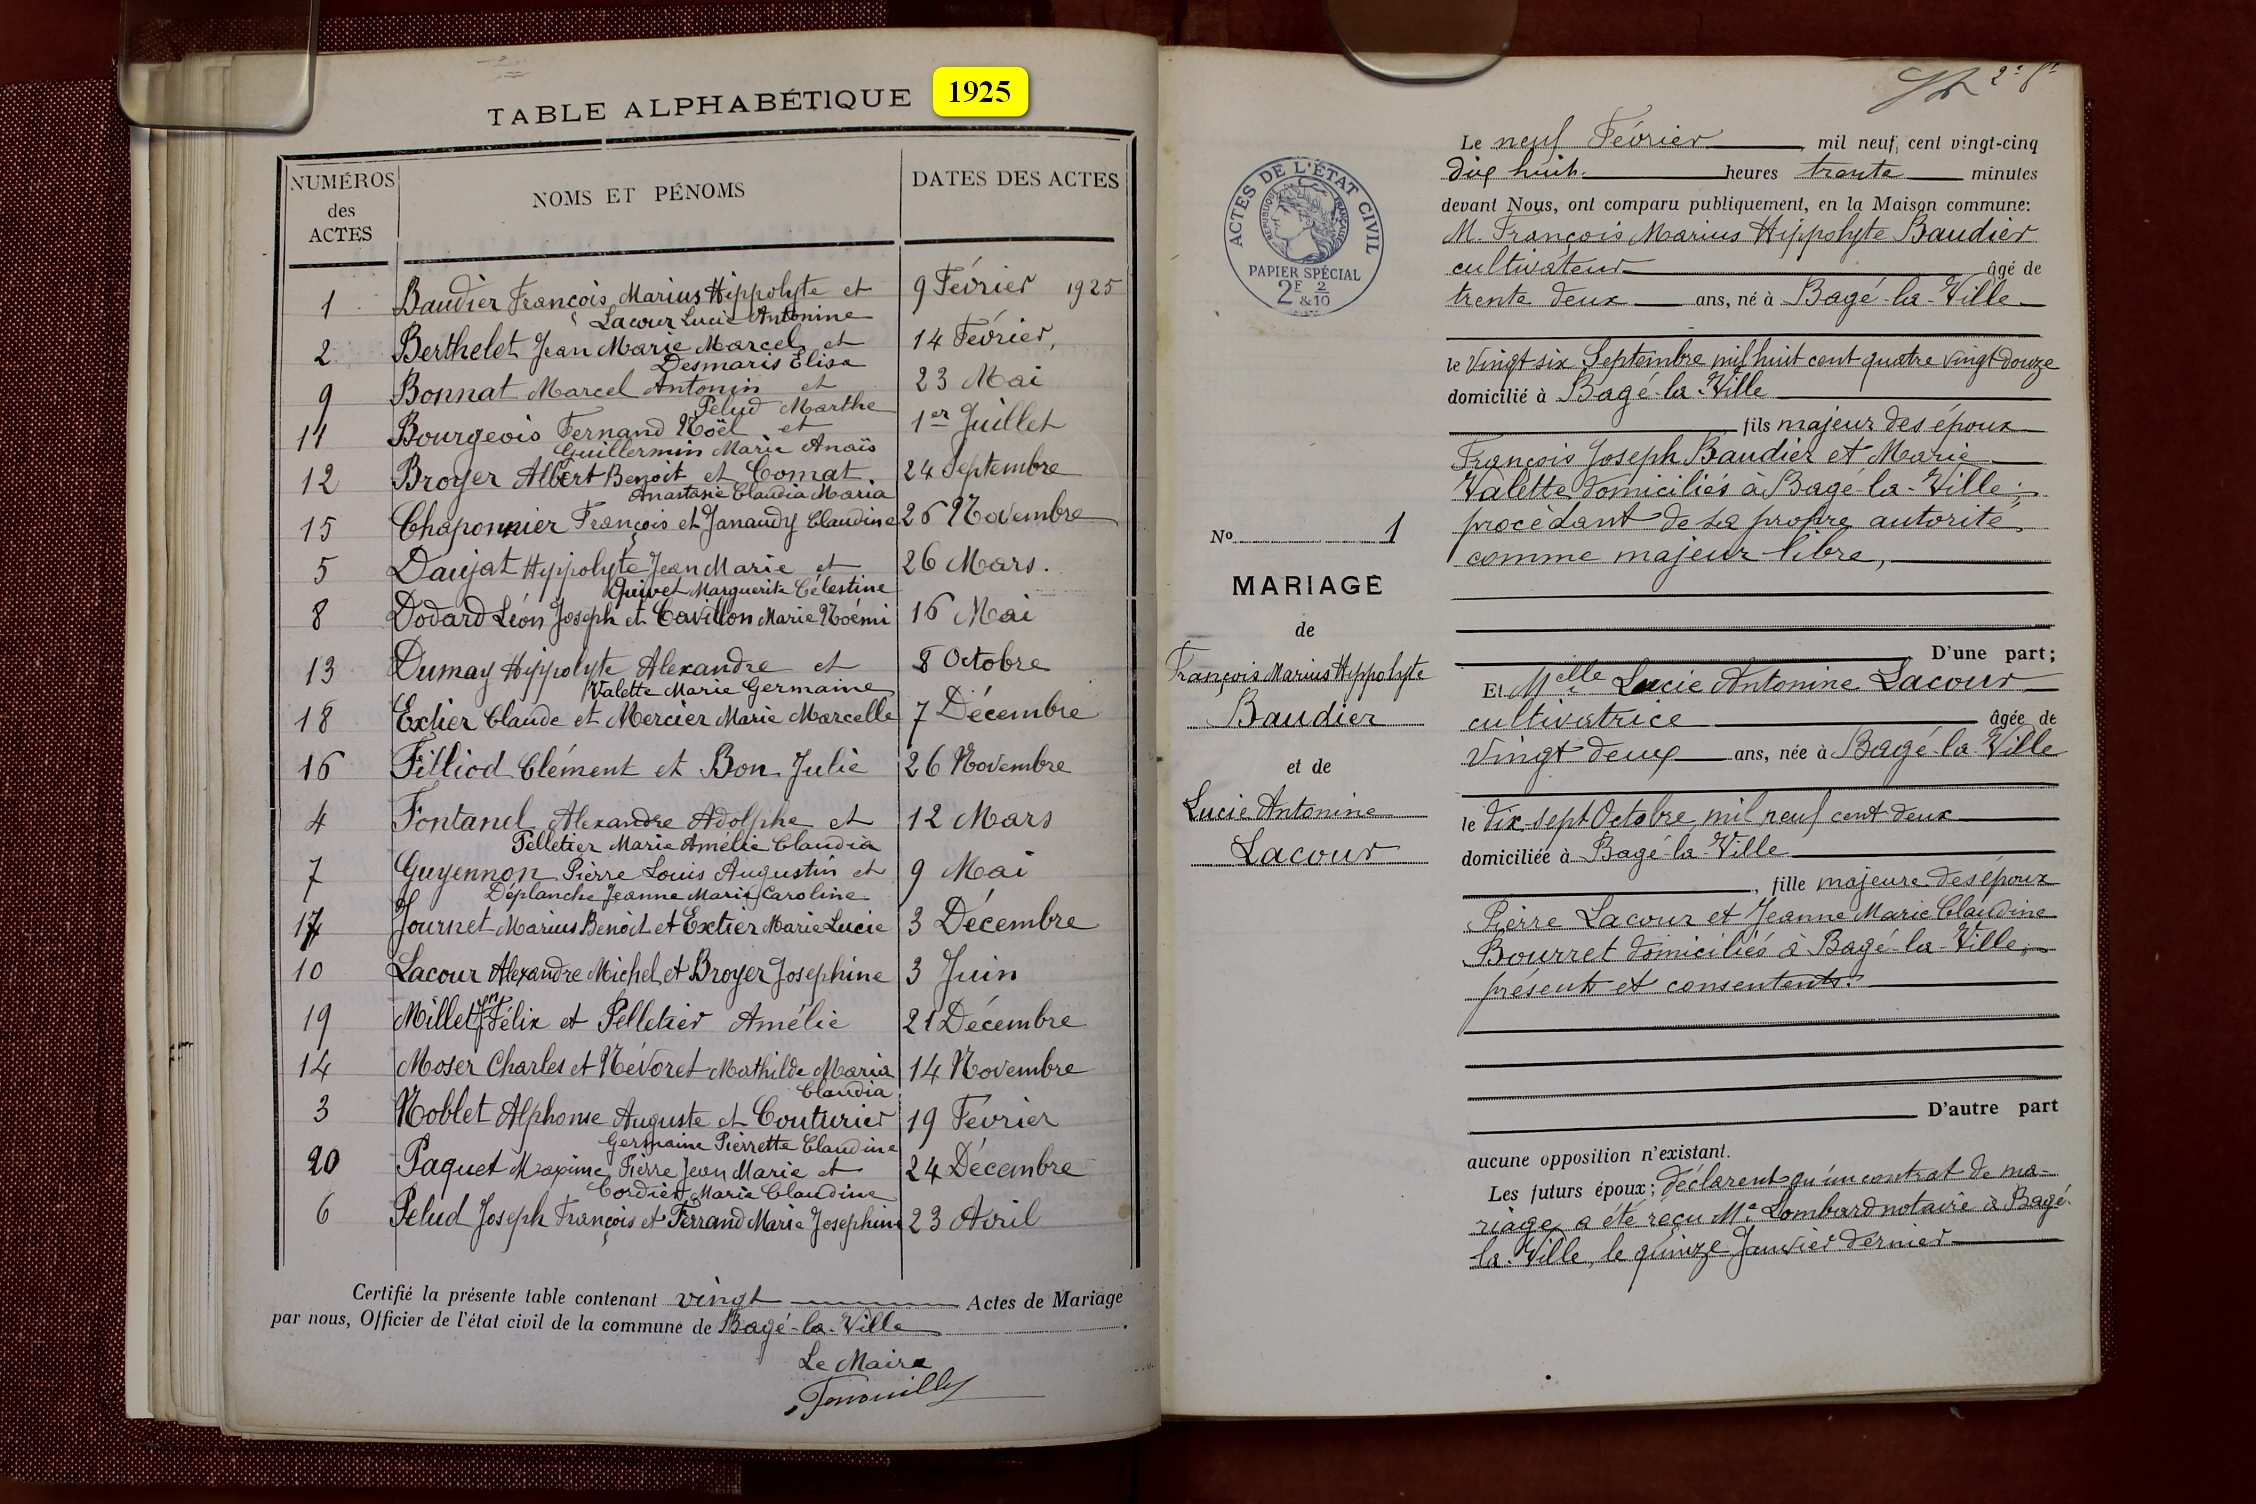 TABLE ALPHABÉTIQUE 1925
NUMÉROS des ACTES
NOMS ET PÉNOMS
DATES DES ACTES
1 Baudier François Marius Hippolyte et 9 Février 1925
Lacour Lucie Antonine
2 Berthelet Jean Marie Marcel et 14 Février,
Desmaris Elisa
9 Bonnat Marcel Antonin et 23 Mai
Pelud Marthe
11 Bourgeois Fernand Noël et 1er Juillet
Guillermin Marie Anaïs
12 Broyer Albert Benoit et Comat 24 Septembre
Anastasie Claudia Maria
15 Chaponnier François et Janaudy Claudine 26 Novembre
5 Daujat Hippolyte Jean Marie et 26 Mars.
Guivet Marguerite Célestine
8 Dodard Léon Joseph et Cavillon Marie Noémi 16 Mai
13 Dumay Hippolyte Alexandre et 8 Octobre
Valette Marie Germaine
18 Extier Claude et Mercier Marie Marcelle 7 Décembre
16 Filliod Clément et Bon Julie 26 Novembre
4 Fontanel Alexandre Adolphe et 12 Mars
Pelletier Marie Amélie Claudia
7 Guyennon Pierre Louis Augustin et 9 Mai
Déplanche Jeanne Marie Caroline
17 Journet Marius Benoît et Extier Marie Lucie 3 Décembre
10 Lacour Alexandre Michel et Broyer Josephine 3 Juin
19 Millet Jn Félix et Pelletier Amélie 21 Décembre
14 Moser Charles et Névoret Mathilde Maria 14 Novembre
Claudia
3 Noblet Alphonse Auguste et Couturier 19 Février
Germaine Pierrette Claudine
20 Paquet Maxime Pierre Jean Marie et 24 Décembre
Cordier Marie Claudine
6 Pelud Joseph François et Ferrand Marie Josephine 23 Avril
Certifié la présente table contenant vingt Actes de Mariage
par nous, Officier de l'état civil de la commune de Bagé-la-Ville
Le Maire
ACTES DE L'ÉTAT CIVIL
RÉPUBLIQUE FRANÇAISE
PAPIER SPÉCIAL
2F 2
&10
No 1
MARIAGE
de
François Marius Hippolyte
Baudier
et de
Lucie Antonine
Lacour
Le neuf Février, mil neuf cent vingt-cinq
dix huit heures trente minutes
devant Nous, ont comparu publiquement, en la Maison commune:
M. François Marius Hippolyte Baudier
cultivateur âgé de
trente deux ans, né à Bagé-la-Ville
le vingt six Septembre mil huit cent quatre vingt douze
domicilié à Bagé-la-Ville
fils majeur des époux
François Joseph Baudier et Marie
Valette domiciliés à Bagé-la-Ville;
procédant de sa propre autorité
comme majeur libre,
D'une part;
Et Melle Lucie Antonine Lacour
cultivatrice âgée de
vingt deux ans, née à Bagé-la-Ville
le dix-sept Octobre mil neuf cent deux
domiciliée à Bagé-la-Ville
, fille majeure des époux
Pierre Lacour et Jeanne Marie Claudine
Bourret domiciliés à Bagé-la-Ville,
présents et consentents.
D'autre part
aucune opposition n'existant.
Les futurs époux; déclarent qu'un contrat de ma-
riage a été reçu Me Lombard notaire à Bagé-
la-Ville, le quinze Janvier dernier